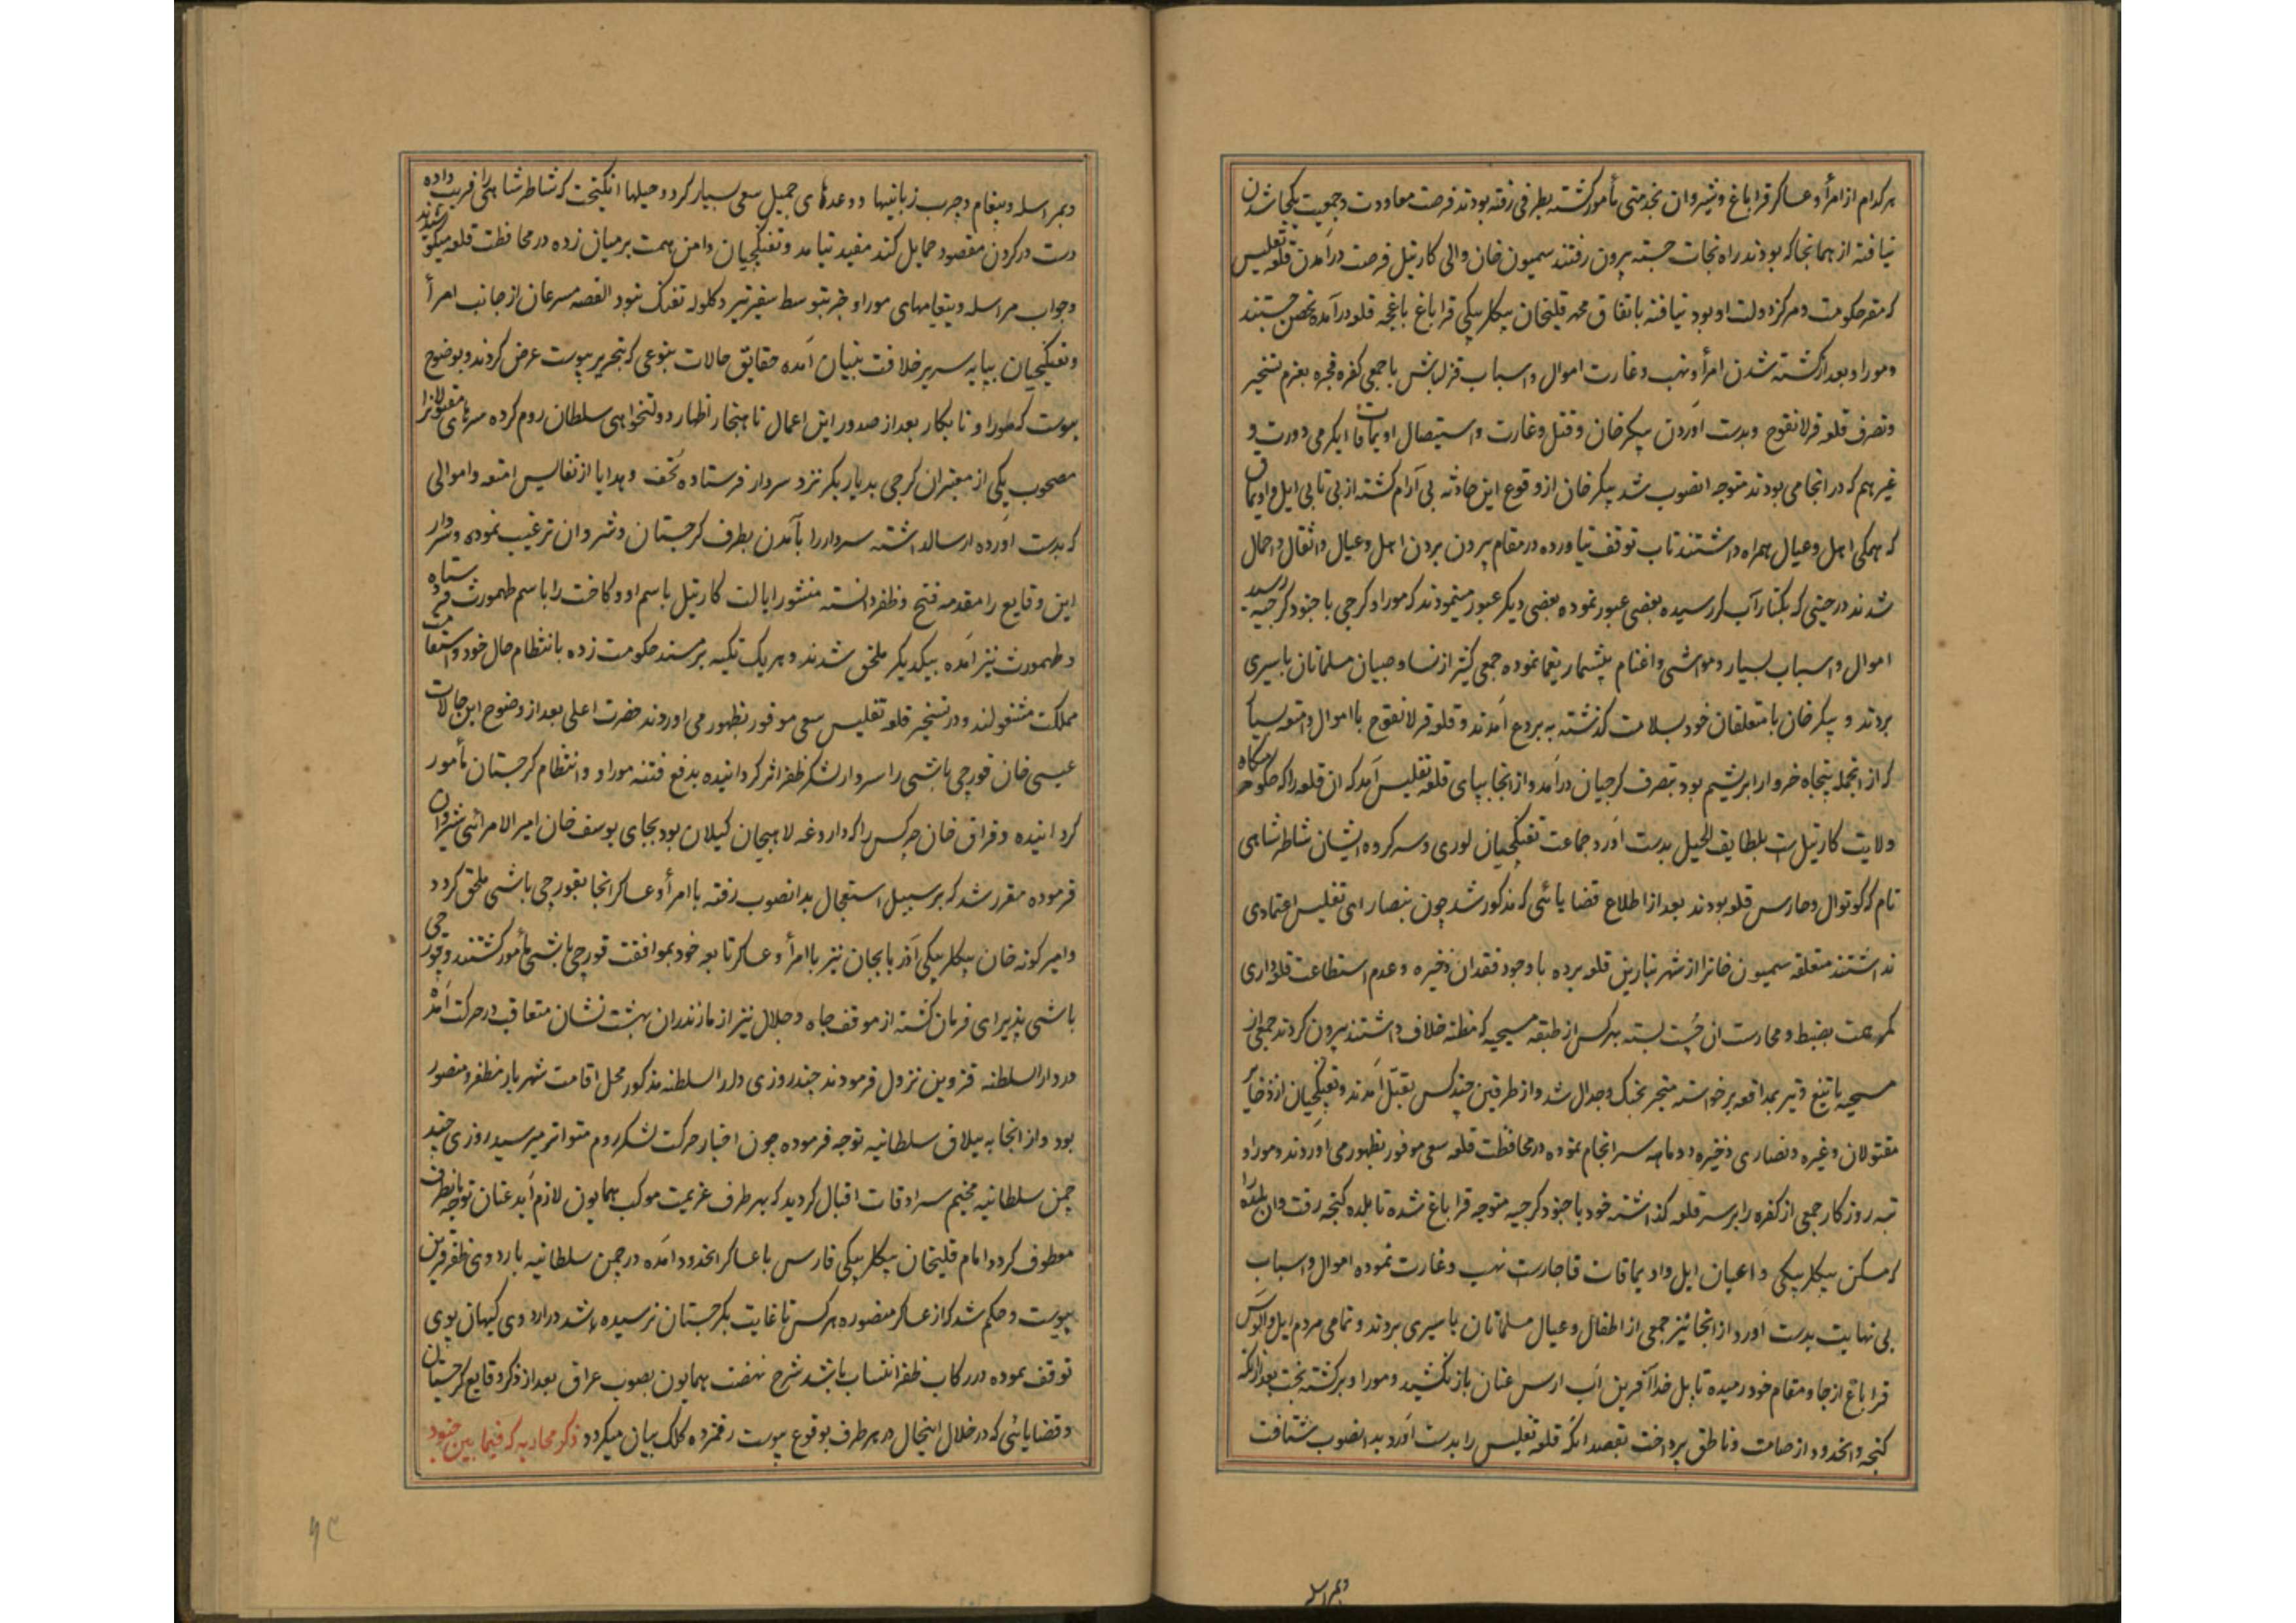 هرکدام از امرأ و عساکر قراباغ و شیروان بخدمتی مأمور کشته بطرفی رفته بودند فرصت معاودت و جمعیت یکجا شدن
نیافته از همانجا که بودند راه نجات جسته بیرون رفتند سمیون خان والی کارتیل فرصت درآمدن قلعه تفلیس
که مقر حکومت و مرکز دولت او بود نیافته باتفاق محمد قلیخان بیکلربیکی قراباغ باغچه قلعه درآمده تحصن جستند
و موراو بعد از کشته شدن امرأ و نهب و غارت اموال و اسباب قزلباش با جمعی کفره فجره بعزم تسخیر
و تصرف قلعه قرلانقوج و بدست آوردن پیکر خان و قتل و غارت و استیصال اویماقات ایکرمی دورت و
غیرهم که در انجا می بودند متوجه انصوب شد پیکر خان از وقوع این حادثه بی آرام کشته از بی تابی ایل و اویماق
که همکی اهل و عیال همراه داشتند تاب توقف نیاورده در مقام بیرون بردن اهل و عیال و اثقال و احمال
شدند در حینی که بکنار آب کر رسیده بعضی عبور نموده بعضی دیکر عبور مینمودند که موراو کرجی با جنود کرجیه رسید
اموال و اسباب بسیار و مواشی و اغنام بیشمار یغما نموده جمعی کثیر از نسا و صبیان مسلمانان باسیری
بردند و پیکر خان با متعلقان خود بسلامت کذشته به بردع آمدند و قلعه قرلانقوج با اموال و امتعه بسیار
که از انجمله پنجاه خروار ابریشم بود بتصرف کرجیان درآمد و از انجا بپای قلعه تفلیس آمد که ان قلعه را که حکومتکاه
ولایت کارتیل است بلطایف الحیل بدست آورد جماعت تفنکچیان لوری و سرکرده ایشان شاطر شاهی
نام که کوتوال و حارس قلعه بودند بعد از اطلاع قضایائی که مذکور شد چون بنصارای تفلیس اعتمادی
نداشتند متعلقه سمیون خانرا از شهر بنارین قلعه برده با وجود فقدان ذخیره و عدم استطاعت قلعه داری
کمر همت بضبط و محارست ان چست بسته هرکس از طبقه مسیحیه که مظنه خلاف داشتند بیرون کردند جمعی از
مسیحیه با تیغ و تیر بمدافعه برخواسته منجر بجنک و جدال شد و از طرفین چند کس بقتل آمدند و تفنکچیان از ذخایر
مقتولان و غیره و نصاری ذخیره دو ماهه سرانجام نموده در محافظت قلعه سعی موفور بظهور می اوردند و موراو
تبه روزکار جمعی از کفره را بر سر قلعه کذاشته خود با جنود کرجیه متوجه قراباغ شده تا بلده کنجه رفت و ان بلده را
که مسکن بیکلربیکی و اعیان ایل و اویماقات قاجار است نهب و غارت نموده اموال و اسباب
بی نهایت بدست آورد از انجا نیز جمعی از اطفال و عیال مسلمانان باسیری بردند و تمامی مردم ایل و الوس
قراباغ از جا و مقام خود رمیده تا پل خداآفرین اب ارس عنان باز نکشید و موراو برکشته بخت بعد از انکه
کنجه و انحدود از صامت و ناطق پرداخت بقصد انکه قلعه تفلیس را بدست آورد بدانصوب شتافت
وبمراسله
وبمراسله و پیغام و چرب زبانیها و وعدهای جمیل سعی بسیار کرد و حیلها انکیخت که شاطر شاهی را فریب داده
دست در کردن مقصود حمایل کند مفید نیامد و تفنکچیان دامن همت بر میان زده در محافظت قلعه میکوشیدند
و جواب مراسله و پیغامهای موراو جز بتوسط سفیر تیر و کلوله تفنک نبود القصه مسرعان از جانب امرأ
و تفنکچیان بپایه سریر خلافت بنیان آمده حقایق حالات بنوعی که بتحریر پیوست عرض کردند و بوضوح
پیوست که موراو نابکار بعد از صدور این اعمال ناهنجار اظهار دولتخواهی سلطان روم کرده سرهای مقتولانرا
مصحوب یکی از معتبران کرجی بدیاربکر نزد سردار فرستاده تحف و هدایا از نفایس امتعه و اموالی
که بدست اورده ارسالداشته سردار را بآمدن بطرف کرجستان و شروان ترغیب نموده و سردار
این وقایع را مقدمه فتح و ظفر دانسته منشور ایالت کارتیل باسم او و کاخت را باسم طهمورث فرستاده
و طهمورث نیز آمده بیکدیکر ملحق شدند و هر یک تکیه بر مسند حکومت زده بانتظام حال خود و استقامت
مملکت مشغولند و در تسخیر قلعه تفلیس سعی موفور بظهور می اوردند حضرت اعلی بعد از وضوح این حالات
عیسی خان قورچی باشی را سردار لشکر ظفر اثر کردانیده بدفع فتنه موراو و انتظام کرجستان مأمور
کردانیده و قزاق خان چرکس را که داروغه لاهیجان کیلان بود بجای یوسف خان امیرالامرائی شیروان
فرموده مقرر شد که بر سبیل استعجال بدانصوب رفته با امرأ و عساکر انجا بقورچی باشی ملحق کردد
و امیرکونه خان بیکلربیکی آذربایجان نیز با امرأ و عساکر تابعه خود بموافقت قورچی باشی مأمور کشتند و قورچی
باشی پذیرای فرمان کشته از موقف جاه و جلال نیز از مازندران بهشت نشان متعاقب در حرکت آمده
در دارالسلطنه قزوین نزول فرمودند چند روزی دارالسلطنه مذکور محل اقامت شهریار مظفر و منصور
بود و از انجا به ییلاق سلطانیه توجه فرموده چون اخبار حرکت لشکر روم متواتر میرسید روزی چند
چمن سلطانیه مخیم سرادقات اقبال کردید که بهر طرف عزیمت موکب همایون لازم آید عنان توجه بانطرف
معطوف کردد امام قلیخان بیکلربیکی فارس با عساکر انحدود آمده در چمن سلطانیه باردوی ظفر قرین
پیوست و حکم شد که از عساکر منصوره هرکس تا غایت بکرجستان نرسیده باشد در اردوی کیهان پوی
توقف نموده در رکاب ظفر انتساب باشد شرح نهضت همایون بصوب عراق بعد از ذکر وقایع کرجستان
و قضایائی که در خلال اینحال در هر طرف بوقوع پیوست رقمزده کلک بیان میکردد ذکر محاربه که فیما بین جنود